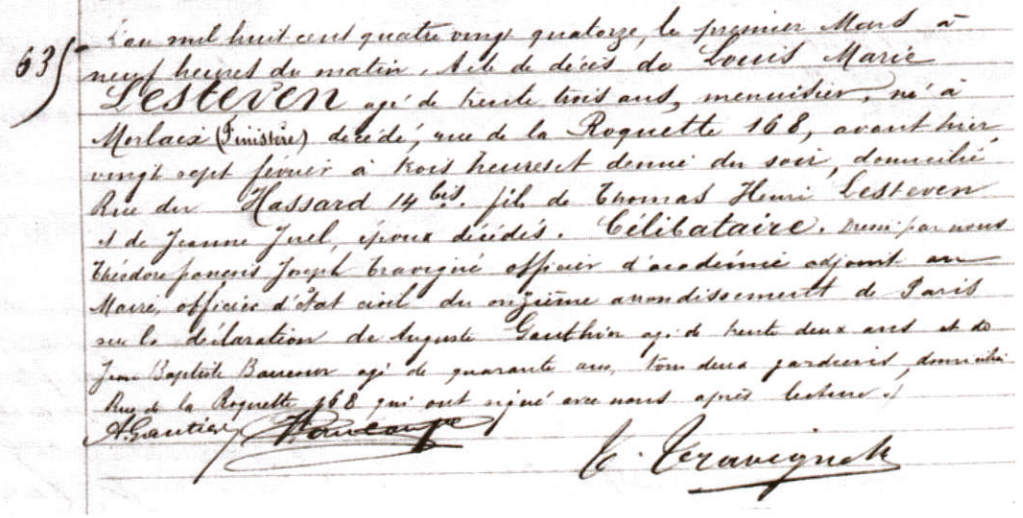 635
L'an mil huit cent quatre vingt quatorze, le premier Mars à
neuf heures du matin. Acte de décès de Louis Marie
Lesteven agé de trente trois ans, menuisier, né à
Morlaix (Finistère) décédé, rue de la Roquette 168, avant hier
vingt sept février à trois heures et demie du soir, domicilié
Rue du Hassard 14 bis. fils de Thomas Henri Lesteven
et de Jeanne Jnel, époux décédés. Célibataire. Dressé par nous
Théodore françois Joseph Travigné officier d'académie adjoint au
Maire, officier d'état civil du onzième arrondissement de Paris
sur la déclaration de Auguste Gauthier agé de trente deux ans et de
Jean Baptiste agé de quarante ans, tous deux gardiens, domiciliés
Rue de la Roquette 168 qui ont signé avec nous après lecture.
A. Gautier